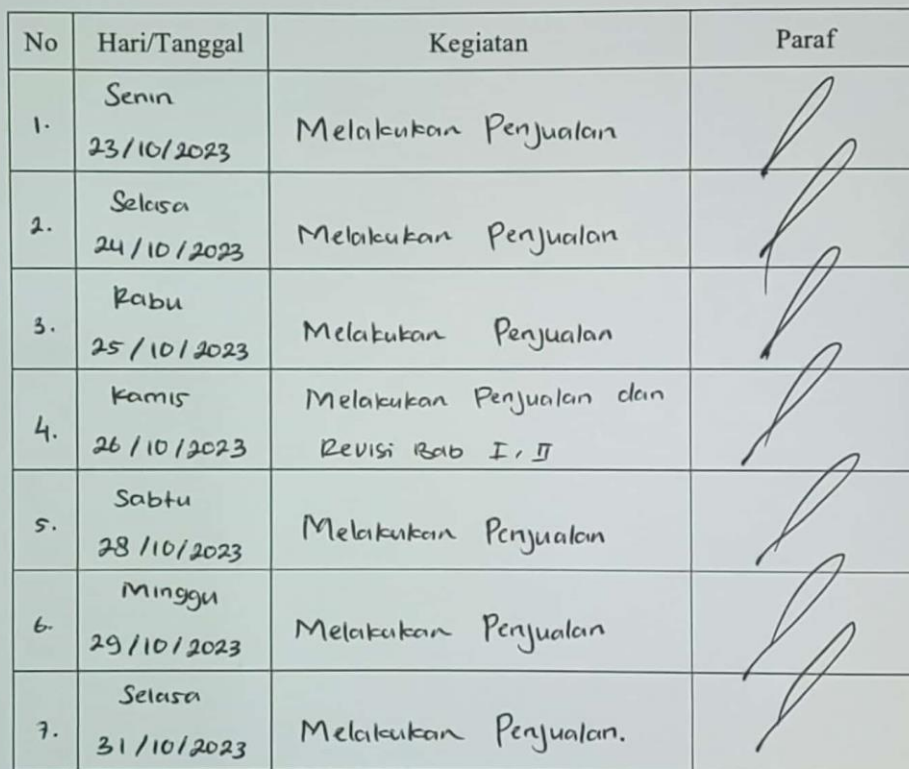 No Hari/Tanggal Kegiatan Paraf
1. Senin
23/10/2023 Melakukan Penjualan
2. Selasa
24/10/2023 Melakukan Penjualan
3. Rabu
25/10/2023 Melakukan Penjualan
4. Kamis
26/10/2023 Melakukan Penjualan dan
Revisi Bab I, II
5. Sabtu
28/10/2023 Melakukan Penjualan
6. Minggu
29/10/2023 Melakukan Penjualan
7. Selasa
31/10/2023 Melakukan Penjualan.